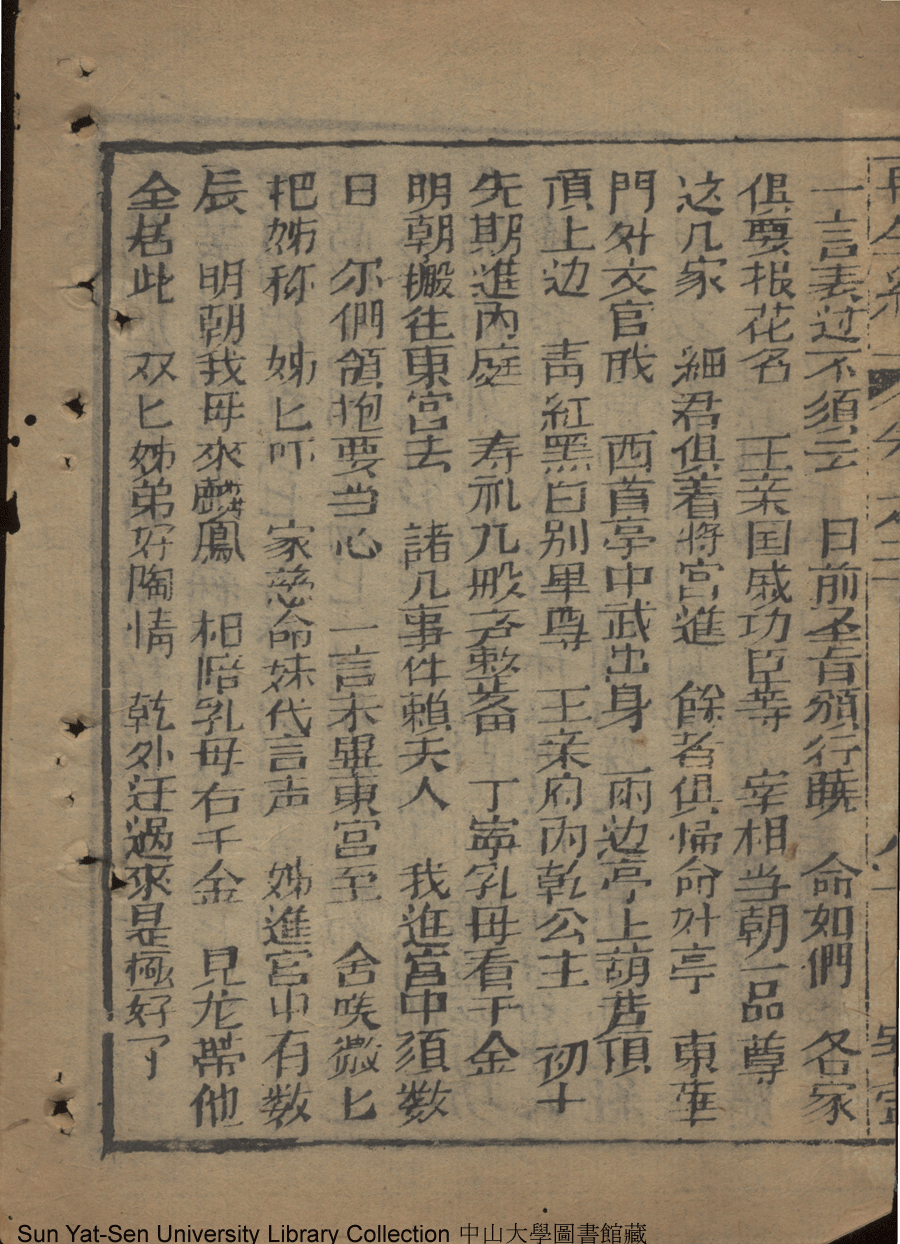 一言表过不須云 日前圣旨頒行曉 命如們 各家
俱要报花名 王亲国戚功臣等 宰相当朝一品尊
这几家 細君俱着將宫進 餘者俱帰命外亭 東華
門外文官戝 西首亭中武出身 両边亭上葫芦頂
頂上边 青紅黑白别卑尊 王亲府内乾公主 初十
先期進内庭 寿礼几般齐整备 丁寧乳母看千金
明朝搬往東宫去 諸几事件賴夫人 我進宫中須数
日 尔們領抱要当心 一言未畢東宫至 含笑微匕
把姊称 姊匕吓 家慈命妹代言声 姊進宫中有数
辰 明朝我母來麟鳳 相陪乳母右千金 見龙帶他
全居此 双匕姊弟好陶情 乾外迂過來是極好了
Sun Yat-Sen University Library Collection 中山大學圖書館藏